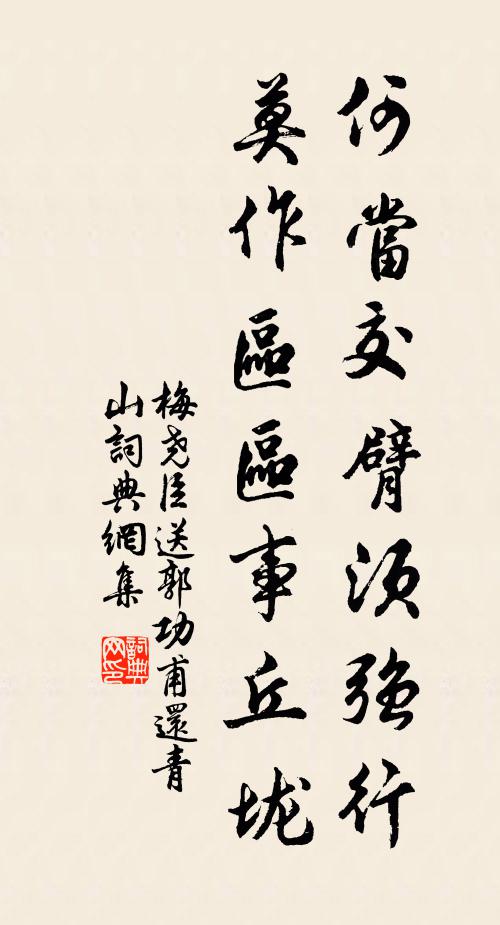 何當交臂須強行
莫作區區事丘垅
梅堯臣送郭功甫還青
山詞典網集
詞典
网印